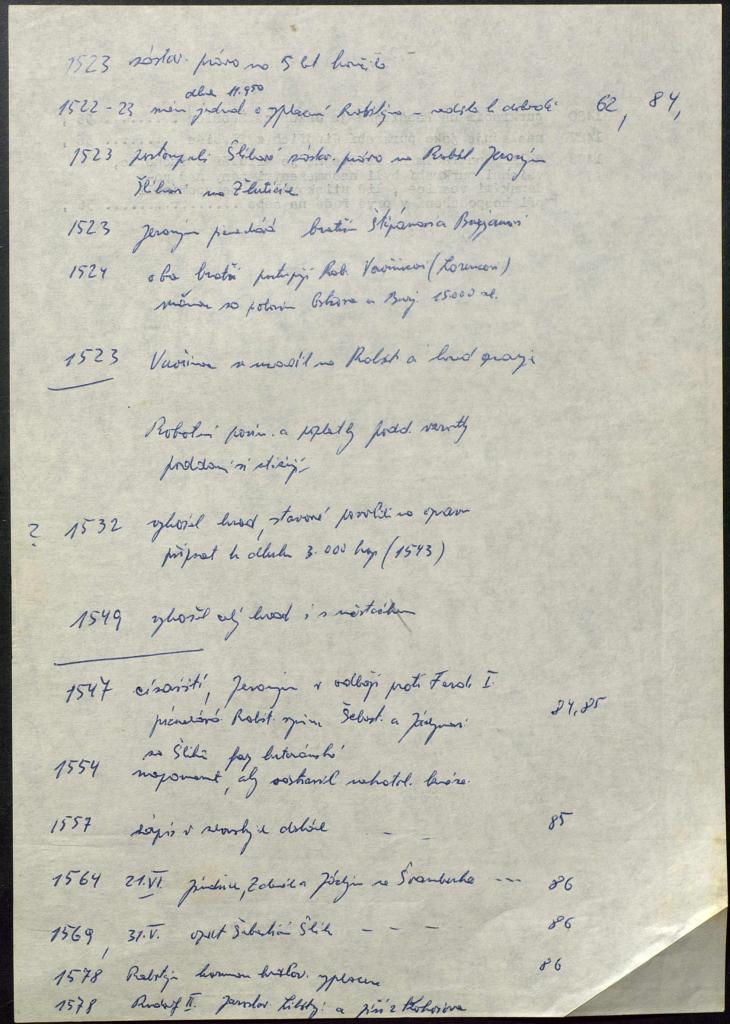 1523 zástav. právo na 5 let končilo
dluh 11.950
1522-23 jednal o vyplacení Rabštejna - k dohodě 62, 84,
1523 postoupili Šlikové zástav. právo na Rabšt. Jeroným
Šlikovi na Žluticích
1523 Jeroným bratřím Štěpánovi a Burjanovi
1524 oba bratři postupují Rab. Vavřincovi (Lorencovi)
za polovinu Ostrova a 15000 zl.
1523 Vavřinec se usadil na Rabšt a hrad opravuje
Robotní povin. a poplatky podd. vzrostly
poddaní si stěžují
? 1532 vyhořel hrad, stavové povolili na opravu
připsat k dluhu 3.000 kop (1543)
1549 vyhořel celý hrad i s městečkem
1547 císařští, Jeroným v odboji proti Ferd. I.
Rabšt. synům Šebest. a Jáchymovi 84,85
za Šliků fary luteránské
1554 napomenut, aby odstranil nekatol. kněze.
1557 zápis v deskách - - 85
1564 21.VI. Jindřich, Zdeněk a Jáchym ze Švamberka --- 86
1569, 31.V. opět Šebestián Šlik - - - 86
1578 Rabštejn komorou královs. vyplacen 86
1578 Rudolf II. Jaroslav Libštej. a Jiří z Kolovrat